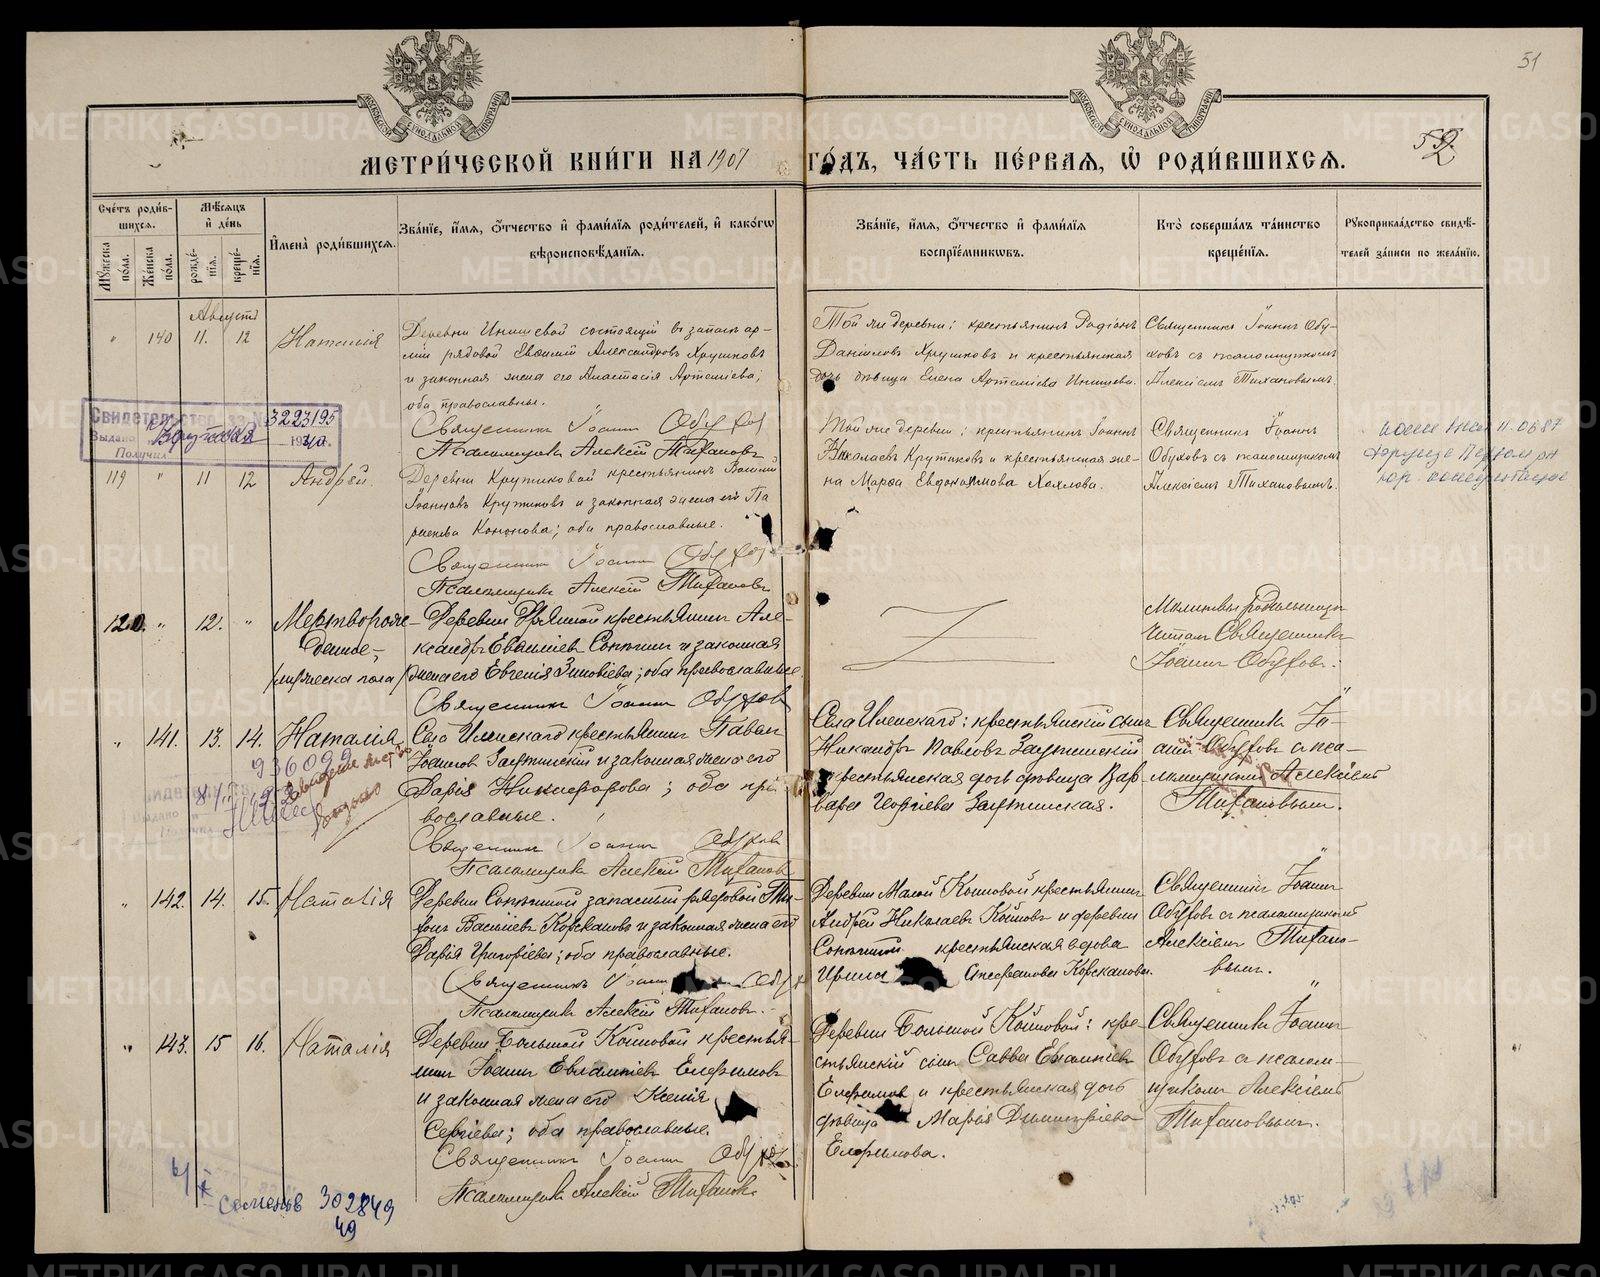 51
52
МЕТРИ́ЧЕСКОЙ КНИ́ГИ НА 1907 ГО́ДЪ, ЧА́СТЬ ПЕ́РВАЯ, Ѡ РОДИ́ВШИХСЯ.
Сче́тъ роди́вшихся.
Му́жеска по́ла.
Же́нска по́ла.
Мѣ́сяцъ и де́нь
рожде́нія.
креще́нія.
И́мена роди́вшихся.
Зва́ніе, и́мя, ѻ́тчество и фами́лія роди́телей, и како́гѡ вѣроисповѣ́данія.
Зва́ніе, и́мя, ѻ́тчество и фами́лія воспріе́мникѡвъ.
Кто̀ соверша́лъ та́инство креще́нія.
Рукоприкла́дство свидѣ́телей за́писи по жела́нію.
Августъ
" 140 11. 12 Наталія
Деревни Инишевой состоящій въ запасѣ ар-
міи рядовой Евѳимій Александровъ Хрушковъ
и законная жена его Анастасія Артеміева;
оба православные.
Священникъ Іоаннъ Обуховъ
Псаломщикъ Алексій Тихановъ
Той же деревни: крестьянинъ Родіонъ
Даніиловъ Хрушковъ и крестьянская
дочь дѣвица Елена Артеміева Инишева.
Священникъ Іоаннъ Обу-
ховъ съ псаломщикомъ
Алексіемъ Тихановымъ.
Свидетельство за № 3223195
Выдано
1940 г.
Получил
119 " 11 12 Андрей.
Деревни Крутиковой крестьянинъ
Іоанновъ Крутиковъ и законная жена его Па
раскева Кононова; оба православные.
Священникъ Іоаннъ Обухов
Псаломщикъ Алексій Тихановъ
Той же деревни: крестьянинъ Іоаннъ
Николаевъ Крутиковъ и крестьянская же-
на Марѳа Евдокимова Хохлова.
Священникъ Іоаннъ
Обуховъ съ псаломщикомъ
Алексіемъ Тихановымъ.
120. " 12. " Мертворож-
денное,
/мужеска пола/
крестьянинъ Але-
ксандръ Евѳиміевъ Сохинъ и законная
жена его Евгенія Зиновіева; оба православные.
Священникъ Іоаннъ Обухов
Молитвы родильницѣ
читалъ Священникъ
Іоаннъ Обуховъ.
" 141. 13. 14. Наталія
936092
Села крестьянинъ Павелъ
Іоанновъ и законная жена его
Дарія Никифорова; оба пра
вославные.
Священникъ Іоаннъ Обухов
Псаломщикъ Алексій Тиханов
крестьянскій сынъ
Никандръ Павловъ
крестьянская дочь дѣвица Вар
вара Георгіева
Священникъ Іо-
аннъ Обуховъ съ пса-
ломщикомъ Алексіемъ
Тихановымъ.
" 142. 14. 15. Наталія
запасный рядовой Ти-
фонъ Василіевъ Корскановъ и законная жена его
Дарья Григоріева; оба православные.
Священникъ Іоаннъ Обух
Псаломщикъ Алексій Тихановъ.
Деревни Малой Кошовой крестьянинъ
Андрей Николаевъ и деревни
крестьянская вдова
Ирина Стефанова Корсканова.
Священникъ Іоаннъ
Обуховъ съ псаломщикомъ
Алексіемъ Тихано-
вымъ.
" 143. 15 16. Наталія
Деревни Большой Кошовой крестья-
нинъ Іоаннъ Евлампіевъ Елфимовъ
и законная жена его Ксенія
Сергіева; оба православные.
Священникъ Іоаннъ Обухов
Псаломщикъ Алексій Тихановъ
Деревни Большой Кошовой: кре-
стьянскій сынъ Савва Евлампіевъ
Елфимовъ и крестьянская дочь
дѣвица Марія Димитріева
Елфимова.
Священникъ Іоаннъ
Обуховъ съ псалом-
щикомъ Алексіемъ
Тихановымъ.
302849
49